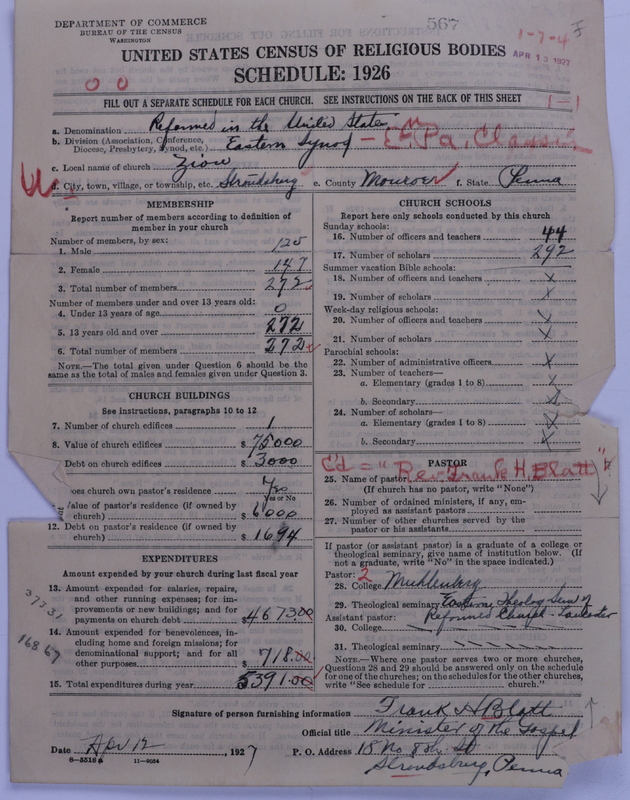 DEPARTMENT OF COMMERCE
BUREAU OF THE CENSUS
WASHINGTON
567
1-7-4
APR 13 1927
UNITED STATES CENSUS OF RELIGIOUS BODIES
SCHEDULE: 1926
FILL OUT A SEPARATE SCHEDULE FOR EACH CHURCH. SEE INSTRUCTIONS ON THE BACK OF THIS SHEET
1-1
a. Denomination Reformed in the United States
b. Division (Association, Conference, Diocese, Presbytery, Synod, etc.) Eastern Synod - E. Pa. Classis
c. Local name of church Zion
d. City, town, village, or township, etc. Stroudsburg e. County Monroe f. State Penna
MEMBERSHIP
Report number of members according to definition of member in your church
Number of members, by sex:
1. Male 125
2. Female 147
3. Total number of members 272
Number of members under and over 13 years old:
4. Under 13 years of age 0
5. 13 years old and over 272
6. Total number of members 272
NOTE.—The total given under Question 6 should be the same as the total of males and females given under Question 3.
CHURCH BUILDINGS
See instructions, paragraphs 10 to 12
7. Number of church edifices 1
8. Value of church edifices $ 75000
Debt on church edifices $ 3000
oes church own pastor's residence Yes
Yes or No
alue of pastor's residence (if owned by church) $ 6000
12. Debt on pastor's residence (if owned by church) $ 1694
EXPENDITURES
Amount expended by your church during last fiscal year
13. Amount expended for salaries, repairs, and other running expenses; for improvements or new buildings; and for payments on church debt $ 4673.00
37331
14. Amount expended for benevolences, including home and foreign missions; for denominational support; and for all other purposes $ 718.00
16867
15. Total expenditures during year 5391.00
CHURCH SCHOOLS
Report here only schools conducted by this church
Sunday schools:
16. Number of officers and teachers 44
17. Number of scholars 292
Summer vacation Bible schools:
18. Number of officers and teachers x
19. Number of scholars x
Week-day religious schools:
20. Number of officers and teachers x
21. Number of scholars x
Parochial schools:
22. Number of administrative officers x
23. Number of teachers—
a. Elementary (grades 1 to 8) x
b. Secondary x
24. Number of scholars—
a. Elementary (grades 1 to 8) x
b. Secondary x
PASTOR
C'd = "Rev. Frank H. Blatt"
25. Name of pastor
(If church has no pastor, write "None")
26. Number of ordained ministers, if any, employed as assistant pastors
27. Number of other churches served by the pastor or his assistants
If pastor (or assistant pastor) is a graduate of a college or theological seminary, give name of institution below. (If not a graduate, write "No" in the space indicated.)
Pastor: 2
28. College Muhlenberg
29. Theological seminary Eastern Theolog Sem of
Assistant pastor: Reformed Church - Lancaster
30. College
31. Theological seminary
NOTE.—Where one pastor serves two or more churches, Questions 28 and 29 should be answered only on the schedule for one of the churches; on the schedules for the other churches, write "See schedule for church."
Signature of person furnishing information Frank H Blatt
Official title Minister of the Gospel
Date Apr 12, 1927 P. O. Address 18 No 8th St
Stroudsburg, Penna
8-5518a 11-9034